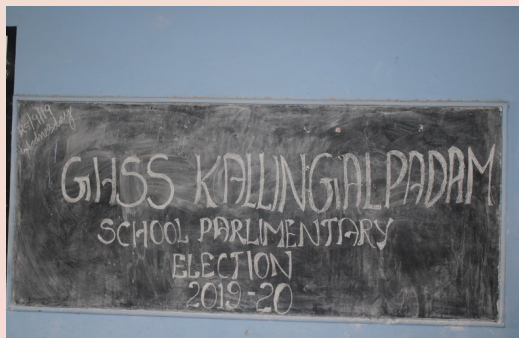 25/9/19
Wednesday
GHSS KALLINGALPADAM
SCHOOL PARLIMENTARY
ELECTION
2019-20